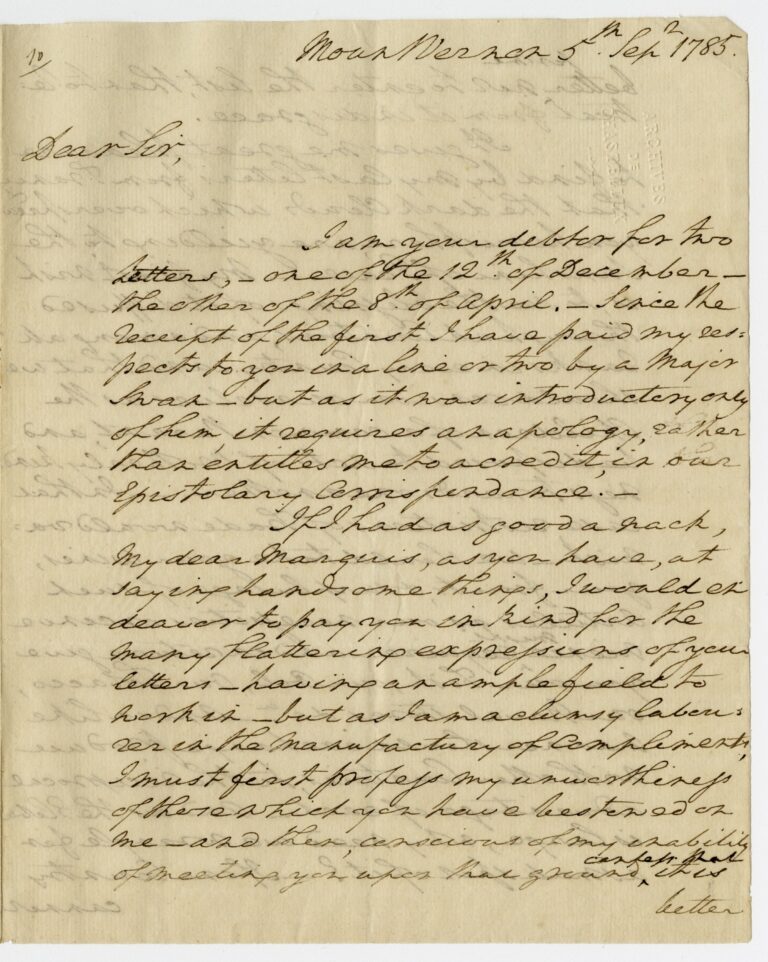 10/
Mount Vernon 5th Sepr 1785.
ARCHIVES
DE
CHASTELLUX
Dear Sir,
I am your debtor for two
letters, – one of the 12th of December –
the other of the 8th of April. – Since the
receipt of the first I have paid my res=
pects to you in a line or two by a Major
Swan – but as it was introductory only
of him, it requires an apology, rather
than entitles me to a credit, in our
Epistolary Corrispondance. –
If I had as good a nack,
My dear Marquis, as you have, at
saying handsome things, I would en
deavor to pay you in kind for the
many flattering expressions of your
letters – having an ample field to
work in – but as I am a clumsy labou=
rer in the manufactory of Compliments,
I must first profess my unworthiness
of those which you have bestowed on
me – and then, conscious of my inability
of meeting you upon that ground, confess that it is
better